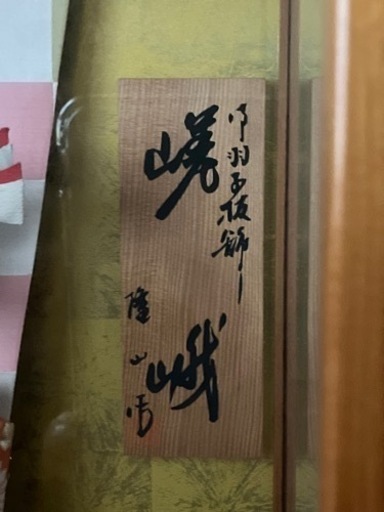 御羽子板飾り
嵯峨
隆山